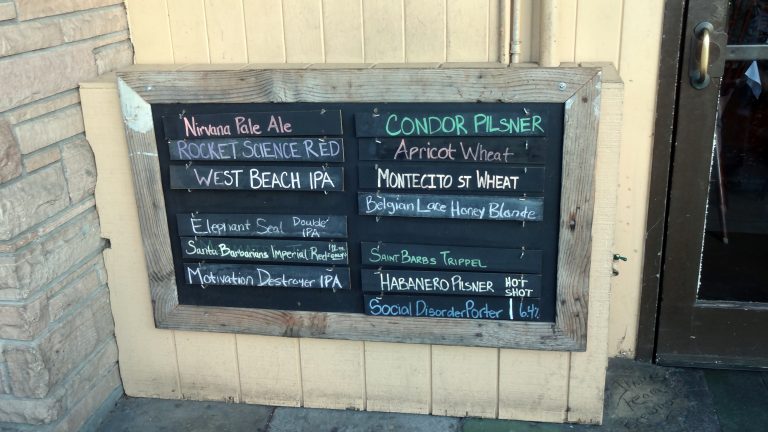 Nirvana Pale Ale
ROCKET SCIENCE RED
WEST BEACH IPA
Elephant Seal Double IPA
Santa Barbarians Imperial Red
Motivation Destroyer IPA
CONDOR PILSNER
Apricot Wheat
MONTECITO ST WHEAT
Belgian Lace Honey Blonde
SAINT BARB'S TRIPPEL
HABANERO PILSNER HOT SHOT
SOCIAL DISORDER PORTER